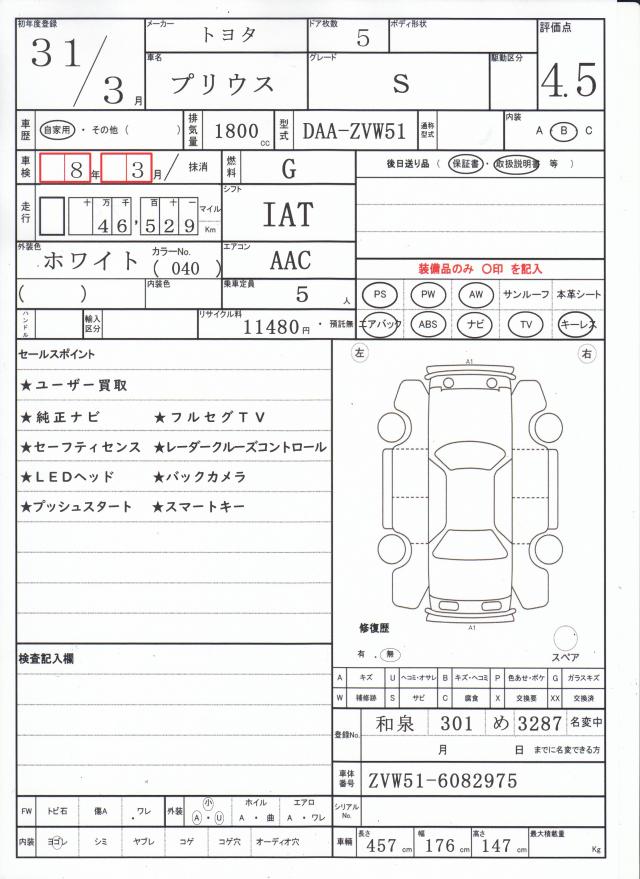 初年度登録 31/3月
メーカー トヨタ ドア枚数 5 ボディ形状
評価点 4.5
車名 プリウス グレード S 駆動区分
車歴 自家用・その他( ) 排気量 1800cc 型式 DAA-ZVW51 通称型式 内装 A・B C
車検 8年3月/ 抹消 燃料 G
後日送り品( 保証書・取扱説明書 等 )
走行 十万千百十一 46,529 マイル Km
シフト IAT
外装色 ホワイト カラーNo. (040)
エアコン AAC
装備品のみ 〇印 を記入
( ) 内装色 乗車定員 5人
PS PW AW サンルーフ 本革シート
ハンドル 輸入区分 リサイクル料 11480円・預託無
エアバック ABS ナビ TV キーレス
セールスポイント
左 右
A1
★ユーザー買取
★純正ナビ ★フルセグTV
★セーフティセンス ★レーダークルーズコントロール
★LEDヘッド ★バックカメラ
★プッシュスタート ★スマートキー
A1
修復歴
有.無
スペア
検査記入欄
A キズ U ヘコミ・オサレ B キズ・ヘコミ P 色あせ・ボケ G ガラスキズ
W 補修跡 S サビ C 腐食 X 交換要 XX 交換済
登録No. 和泉 301 め 3287 名変中
月 日 までに名変できる方
車体番号 ZVW51-6082975
シリアルNo.
FW トビ石 傷A ・ワレ 外装 小 A・U ホイル A・曲 エアロ A・ワレ
内装 ヨゴレ シミ ヤブレ コゲ コゲ穴 オーディオ穴
車輛 長さ 457cm 幅 176cm 高さ 147cm 最大積載量 Kg